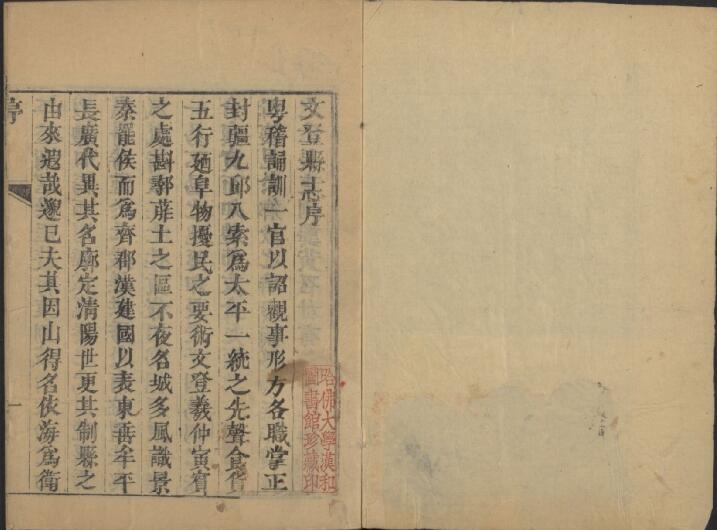 文登縣志序
粤稽誦訓一官以詔觀事形方各職掌正
封疆九邱八索爲太平一統之先聲食貨
五行廼阜物擾民之要術文登羲仲寅賓
之處斟鄩薜土之區不夜名城多風識景
秦罷侯而爲齊郡漢建國以表東岳牟平
長廣代異其名廓定清陽世更其制縣之
由來遐哉邈已夫其因山得名依海爲衛
序
一
哈佛大學漢和
圖書館珍藏印